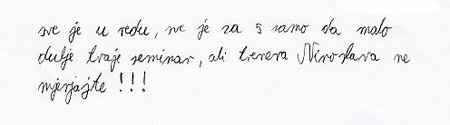 sve je u redu, sve je za 5 samo da malo
dulje traje seminar, ali trenera Miroslava ne
mjenjajte !!!